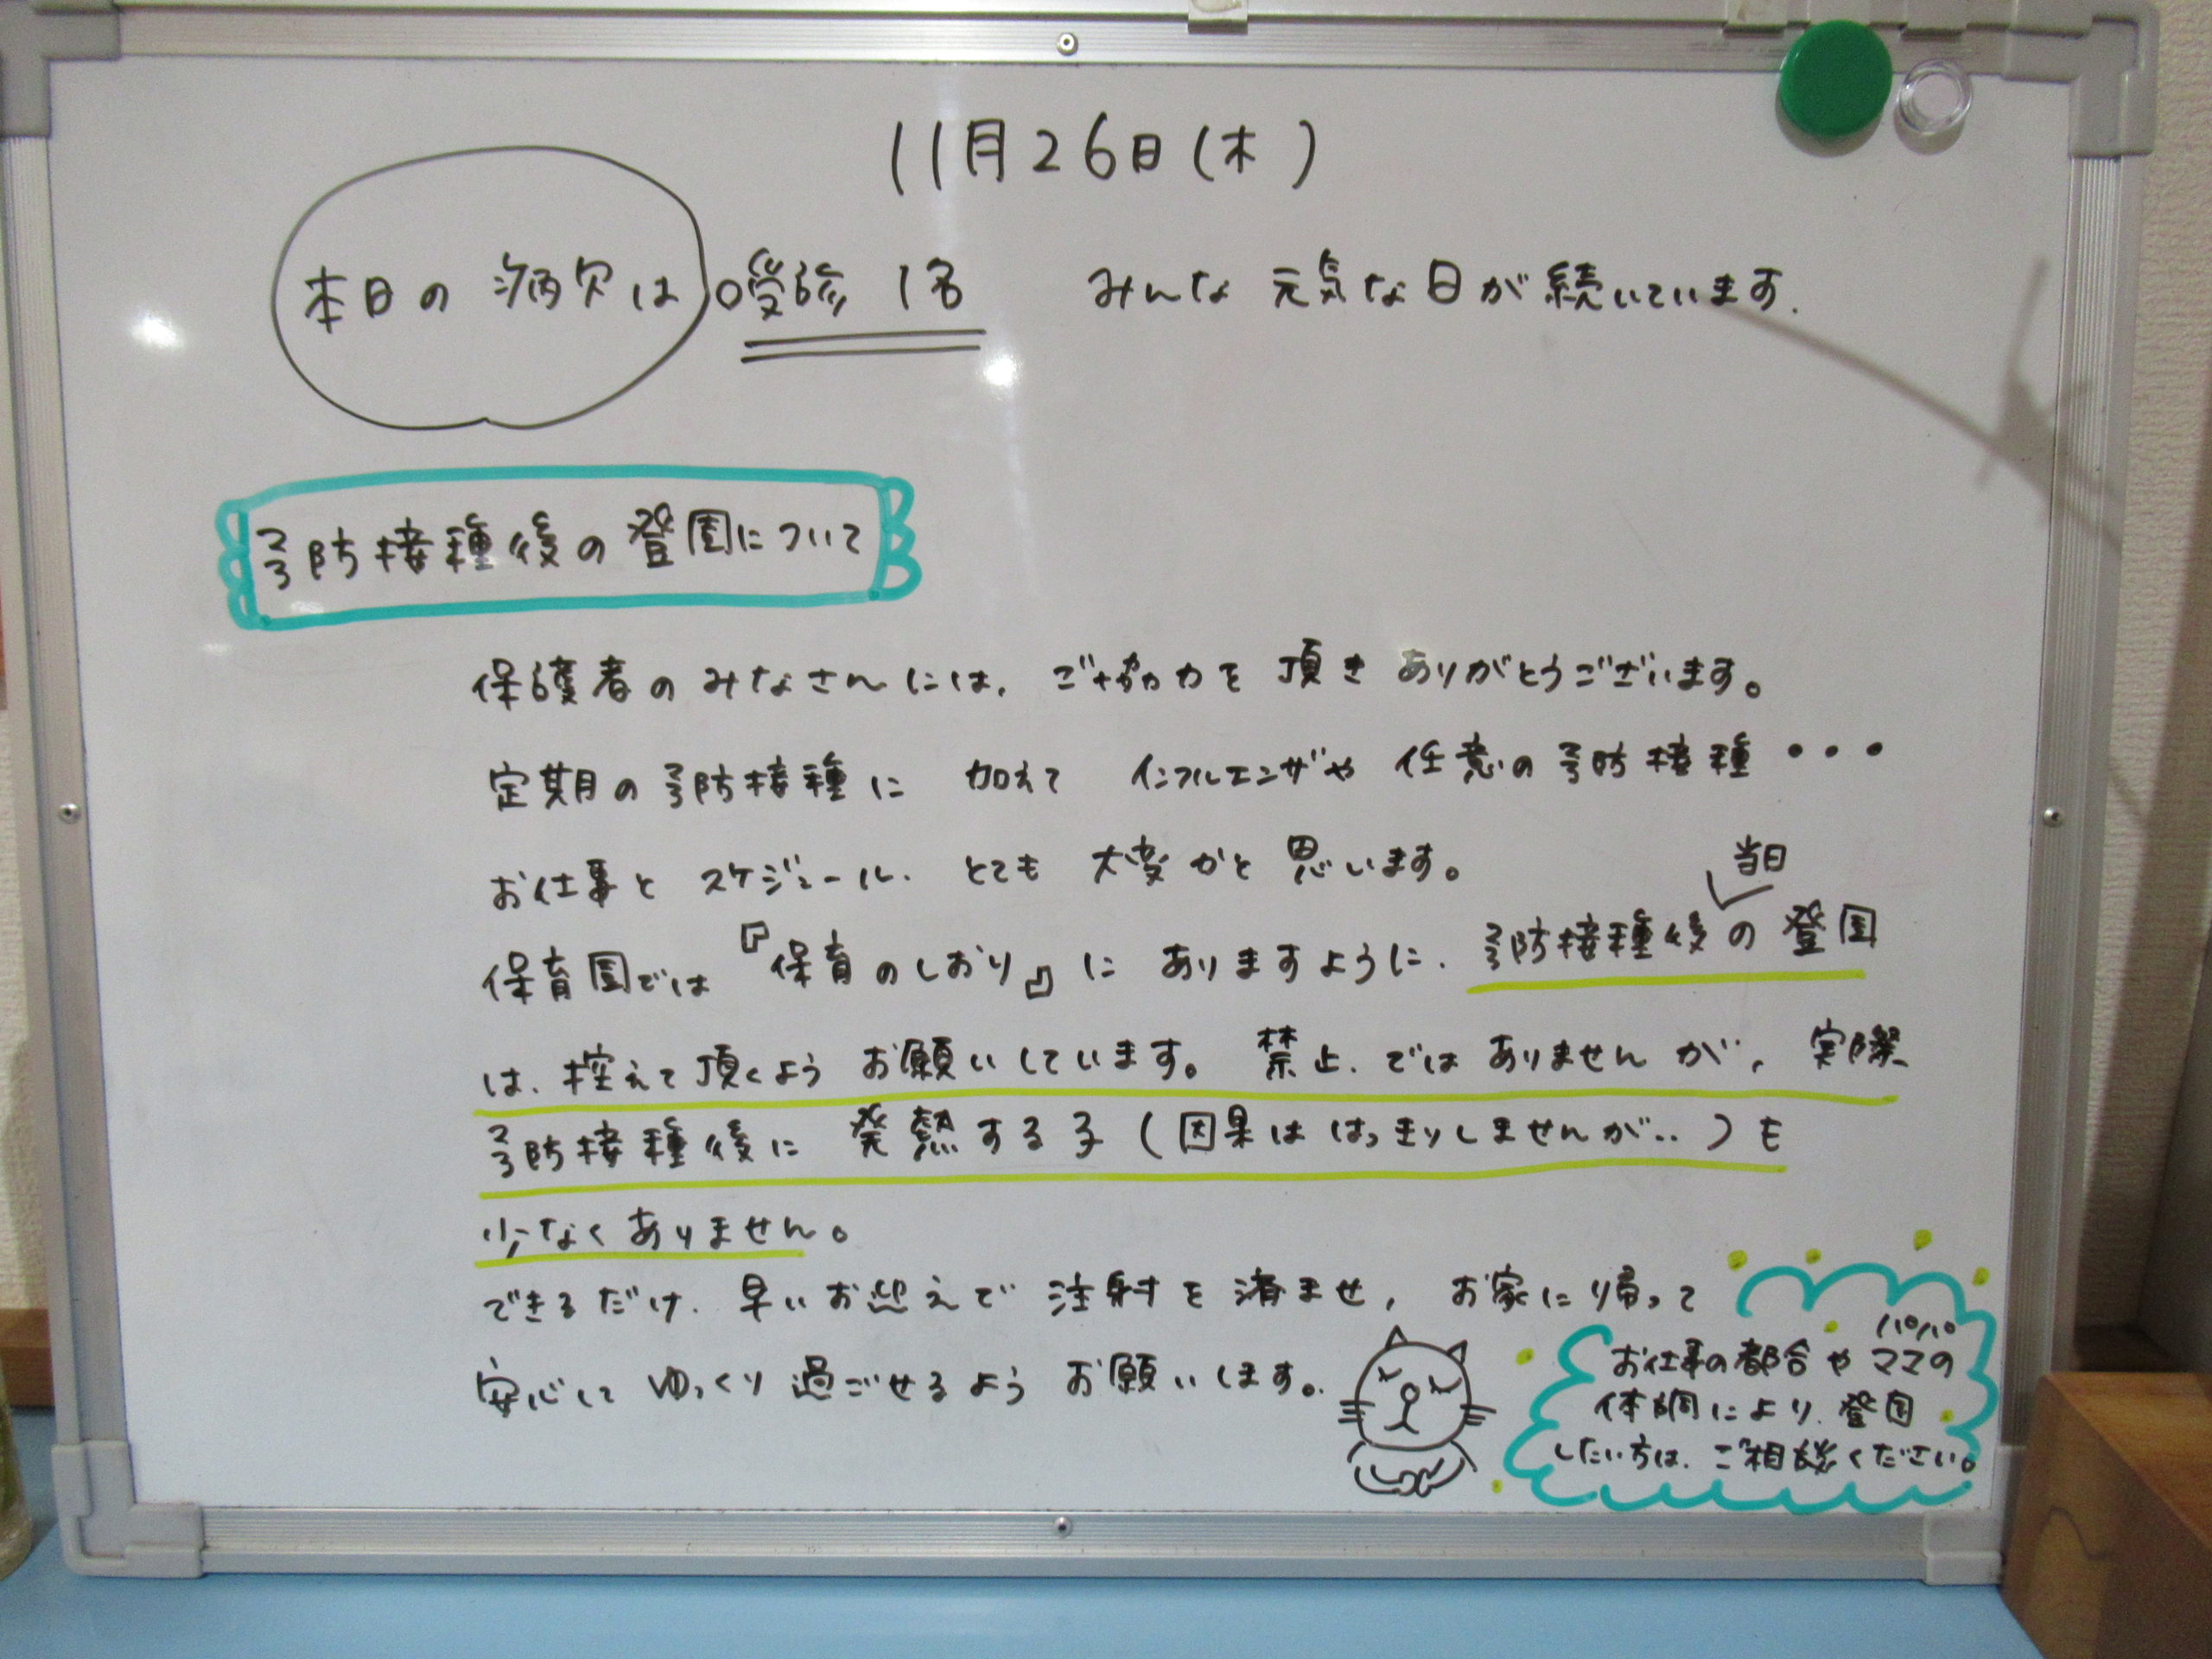 11月26日(木)
本日の病欠は 受診 1名 みんな元気な日が続いています.
予防接種後の登園について
保護者のみなさんには、ご協力を頂きありがとうございます。
定期の予防接種に 加えて インフルエンザや 任意の予防接種・・・
お仕事と スケジュール、とても 大変かと思います。
当日
保育園では『保育のしおり』に ありますように、予防接種後の登園
は、控えて頂くよう お願いしています。禁止、ではありませんが、実際
予防接種後に 発熱する子(因果は はっきりしませんが..)も
少なくありません。
できるだけ、早いお迎えで 注射を済ませ、お家に帰って
安心して ゆっくり過ごせるよう お願いします。
パパ
お仕事の都合や ママの
体調により、登園
したい方は、ご相談ください。